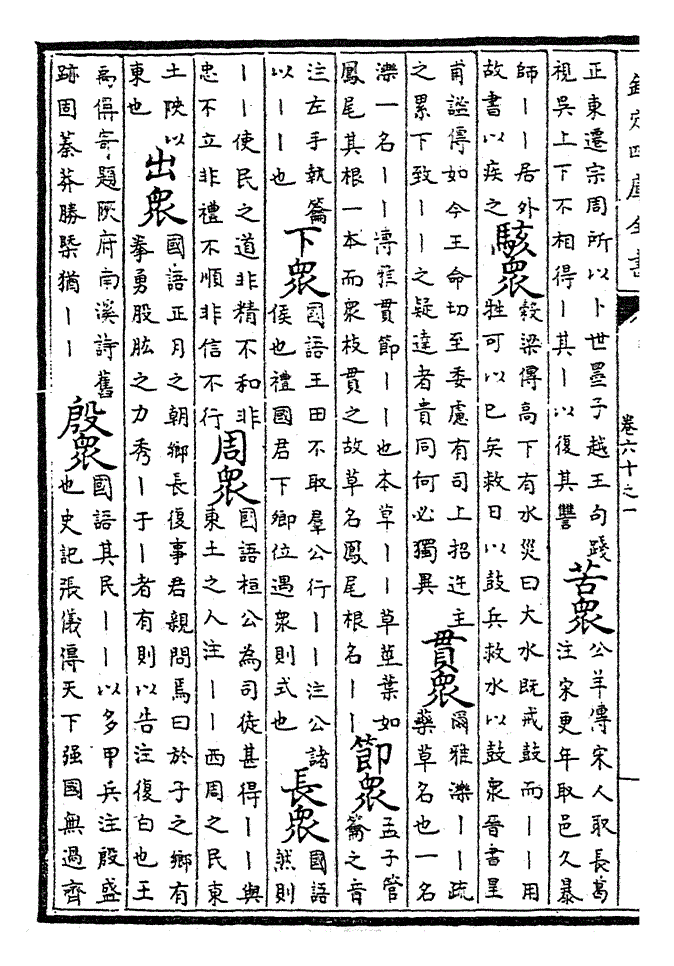 欽定四庫全書
卷六十之一
正東遷宗周所以卜世墨子越王句踐
視吳上下不相得丨其丨以復其讐
苦衆
公羊傳宋人取長葛
注宋更年取邑久暴
師丨丨居外
故書以疾之
駭衆
穀梁傳高下有水災曰大水既戒鼓而丨丨用
牲可以已矣救日以鼓兵救水以鼓衆晉書皇
甫謐傳如今王命切至委慮有司上招迕主
之累下致丨丨之疑達者貴同何必獨異
貫衆
爾雅濼丨丨疏
藥草名也一名
濼一名丨丨博雅貫節丨丨也本草丨丨草莖葉如
鳳尾其根一本而衆枝貫之故草名鳳尾根名丨丨
節衆
孟子管
籥之音
注左手執籥
以丨丨也
下衆
國語王田不取羣公行丨丨注公諸
侯也禮國君下卿位遇衆則式也
長衆
國語
然則
丨丨使民之道非精不和非
忠不立非禮不順非信不行
周衆
國語桓公為司徒甚得丨丨與
東土之人注丨丨西周之民東
土陝以
東也
出衆
國語正月之朝鄉長復事君親問焉曰於子之鄉有
拳勇股肱之力秀丨于丨者有則以告注復白也王
禹偁寄題陝府南溪詩舊
跡固蓁莽勝槩猶丨丨
殷衆
國語其民丨丨以多甲兵注殷盛
也史記張儀傳天下强國無過齊